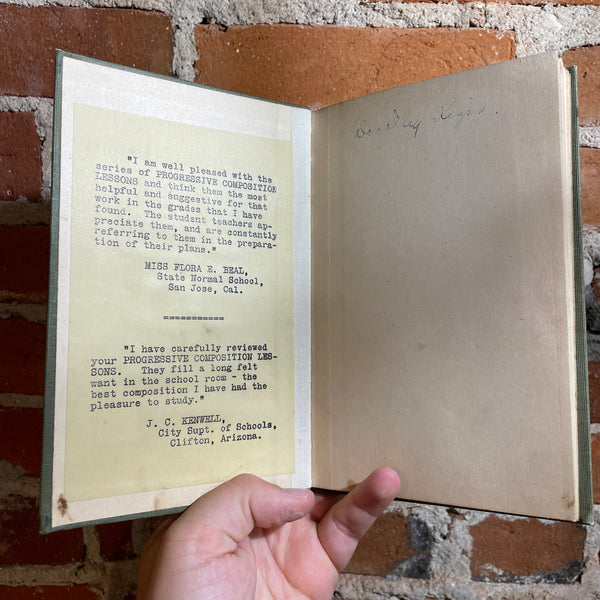 "I am well pleased with the
series of PROGRESSIVE COMPOSITION
LESSONS and think them the most
helpful and suggestive for that
work in the grades that I have
found. The student teachers ap-
preciate them, and are constantly
referring to them in the prepara-
tion of their plans."
MISS FLORA E. BEAL,
State Normal School,
San Jose, Cal.
===========
"I have carefully reviewed
your PROGRESSIVE COMPOSITION LES-
SONS. They fill a long felt
want in the school room - the
best composition I have had the
pleasure to study."
J. C. KENWELL,
City Supt. of Schools,
Clifton, Arizona.